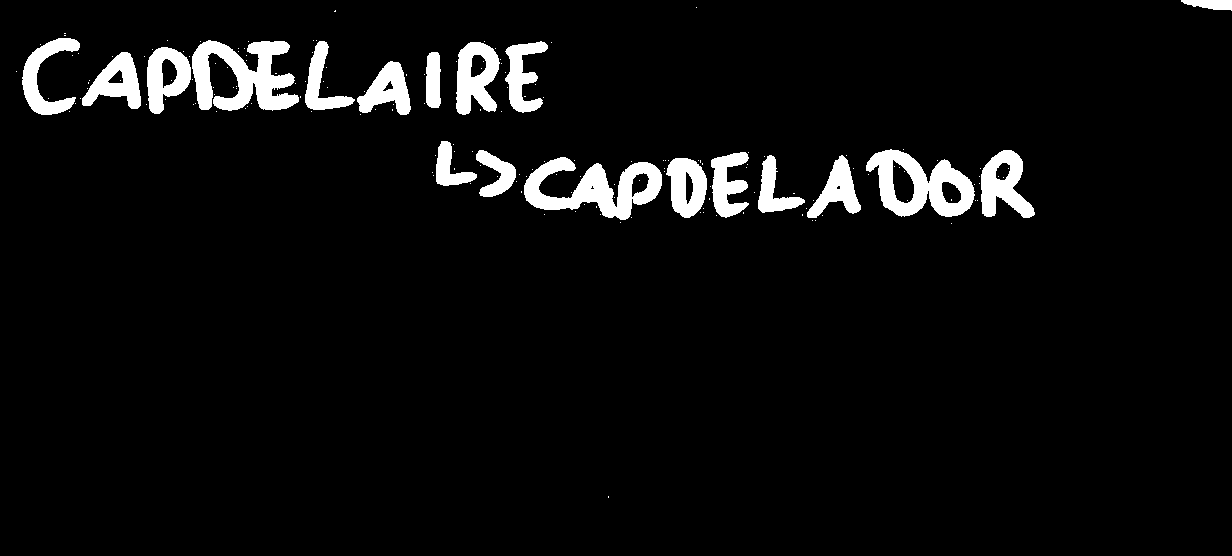 CAPDELAIRE
↳ CAPDELADOR